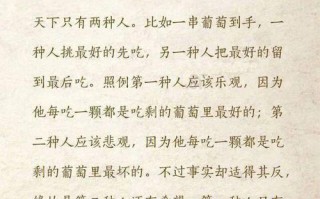 天下只有两种人。比如一串葡萄到手，一
种人挑最好的先吃，另一种人把最好的留
到最后吃。照例第一种人应该乐观，因为
他每吃一颗都是吃剩的葡萄里最好的；第
二种人应该悲观，因为他每吃一颗都是吃
剩的葡萄里最坏的。不过事实却适得其反，